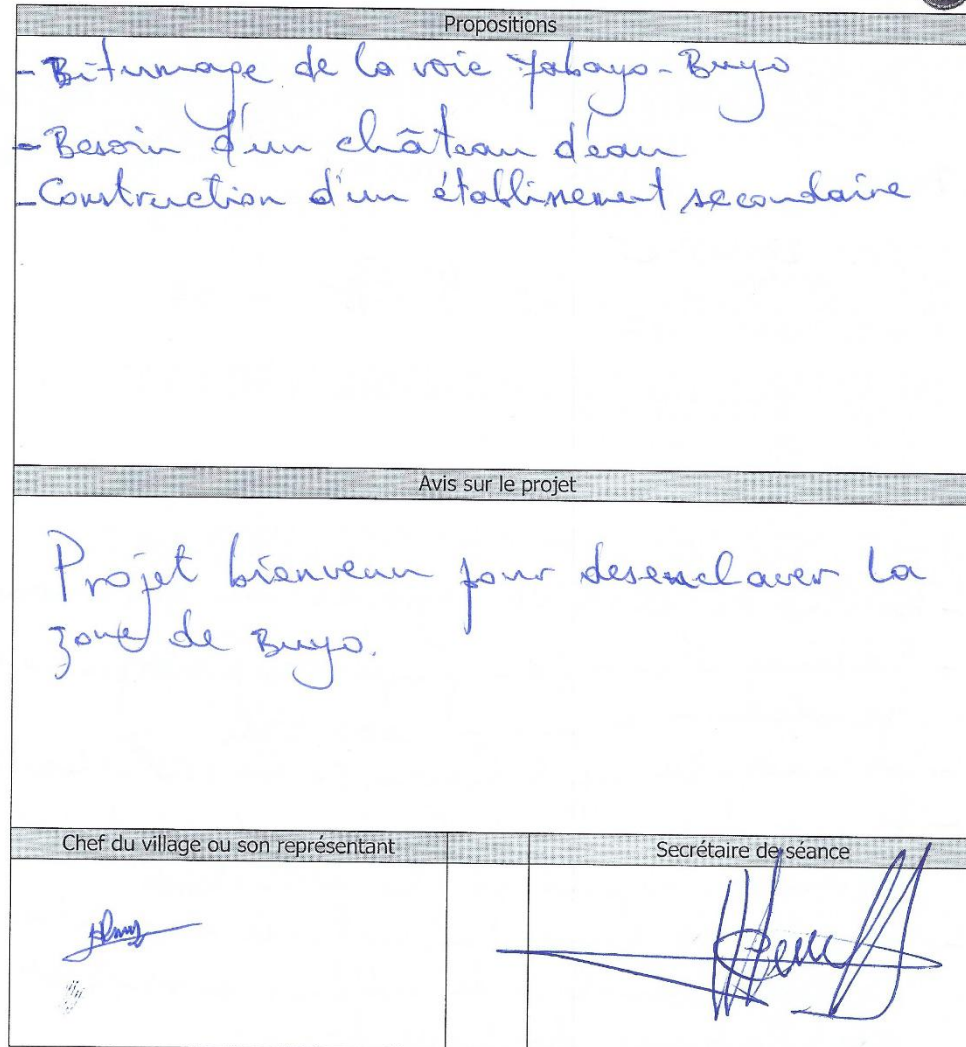 Propositions
- Bitumage de la voie Yabayo-Buyo
- Besoin d'un château d'eau
- Construction d'un établissement secondaire
Avis sur le projet
Projet bienvenu pour desenclaver la
zone de Buyo.
Chef du village ou son représentant
Secrétaire de séance